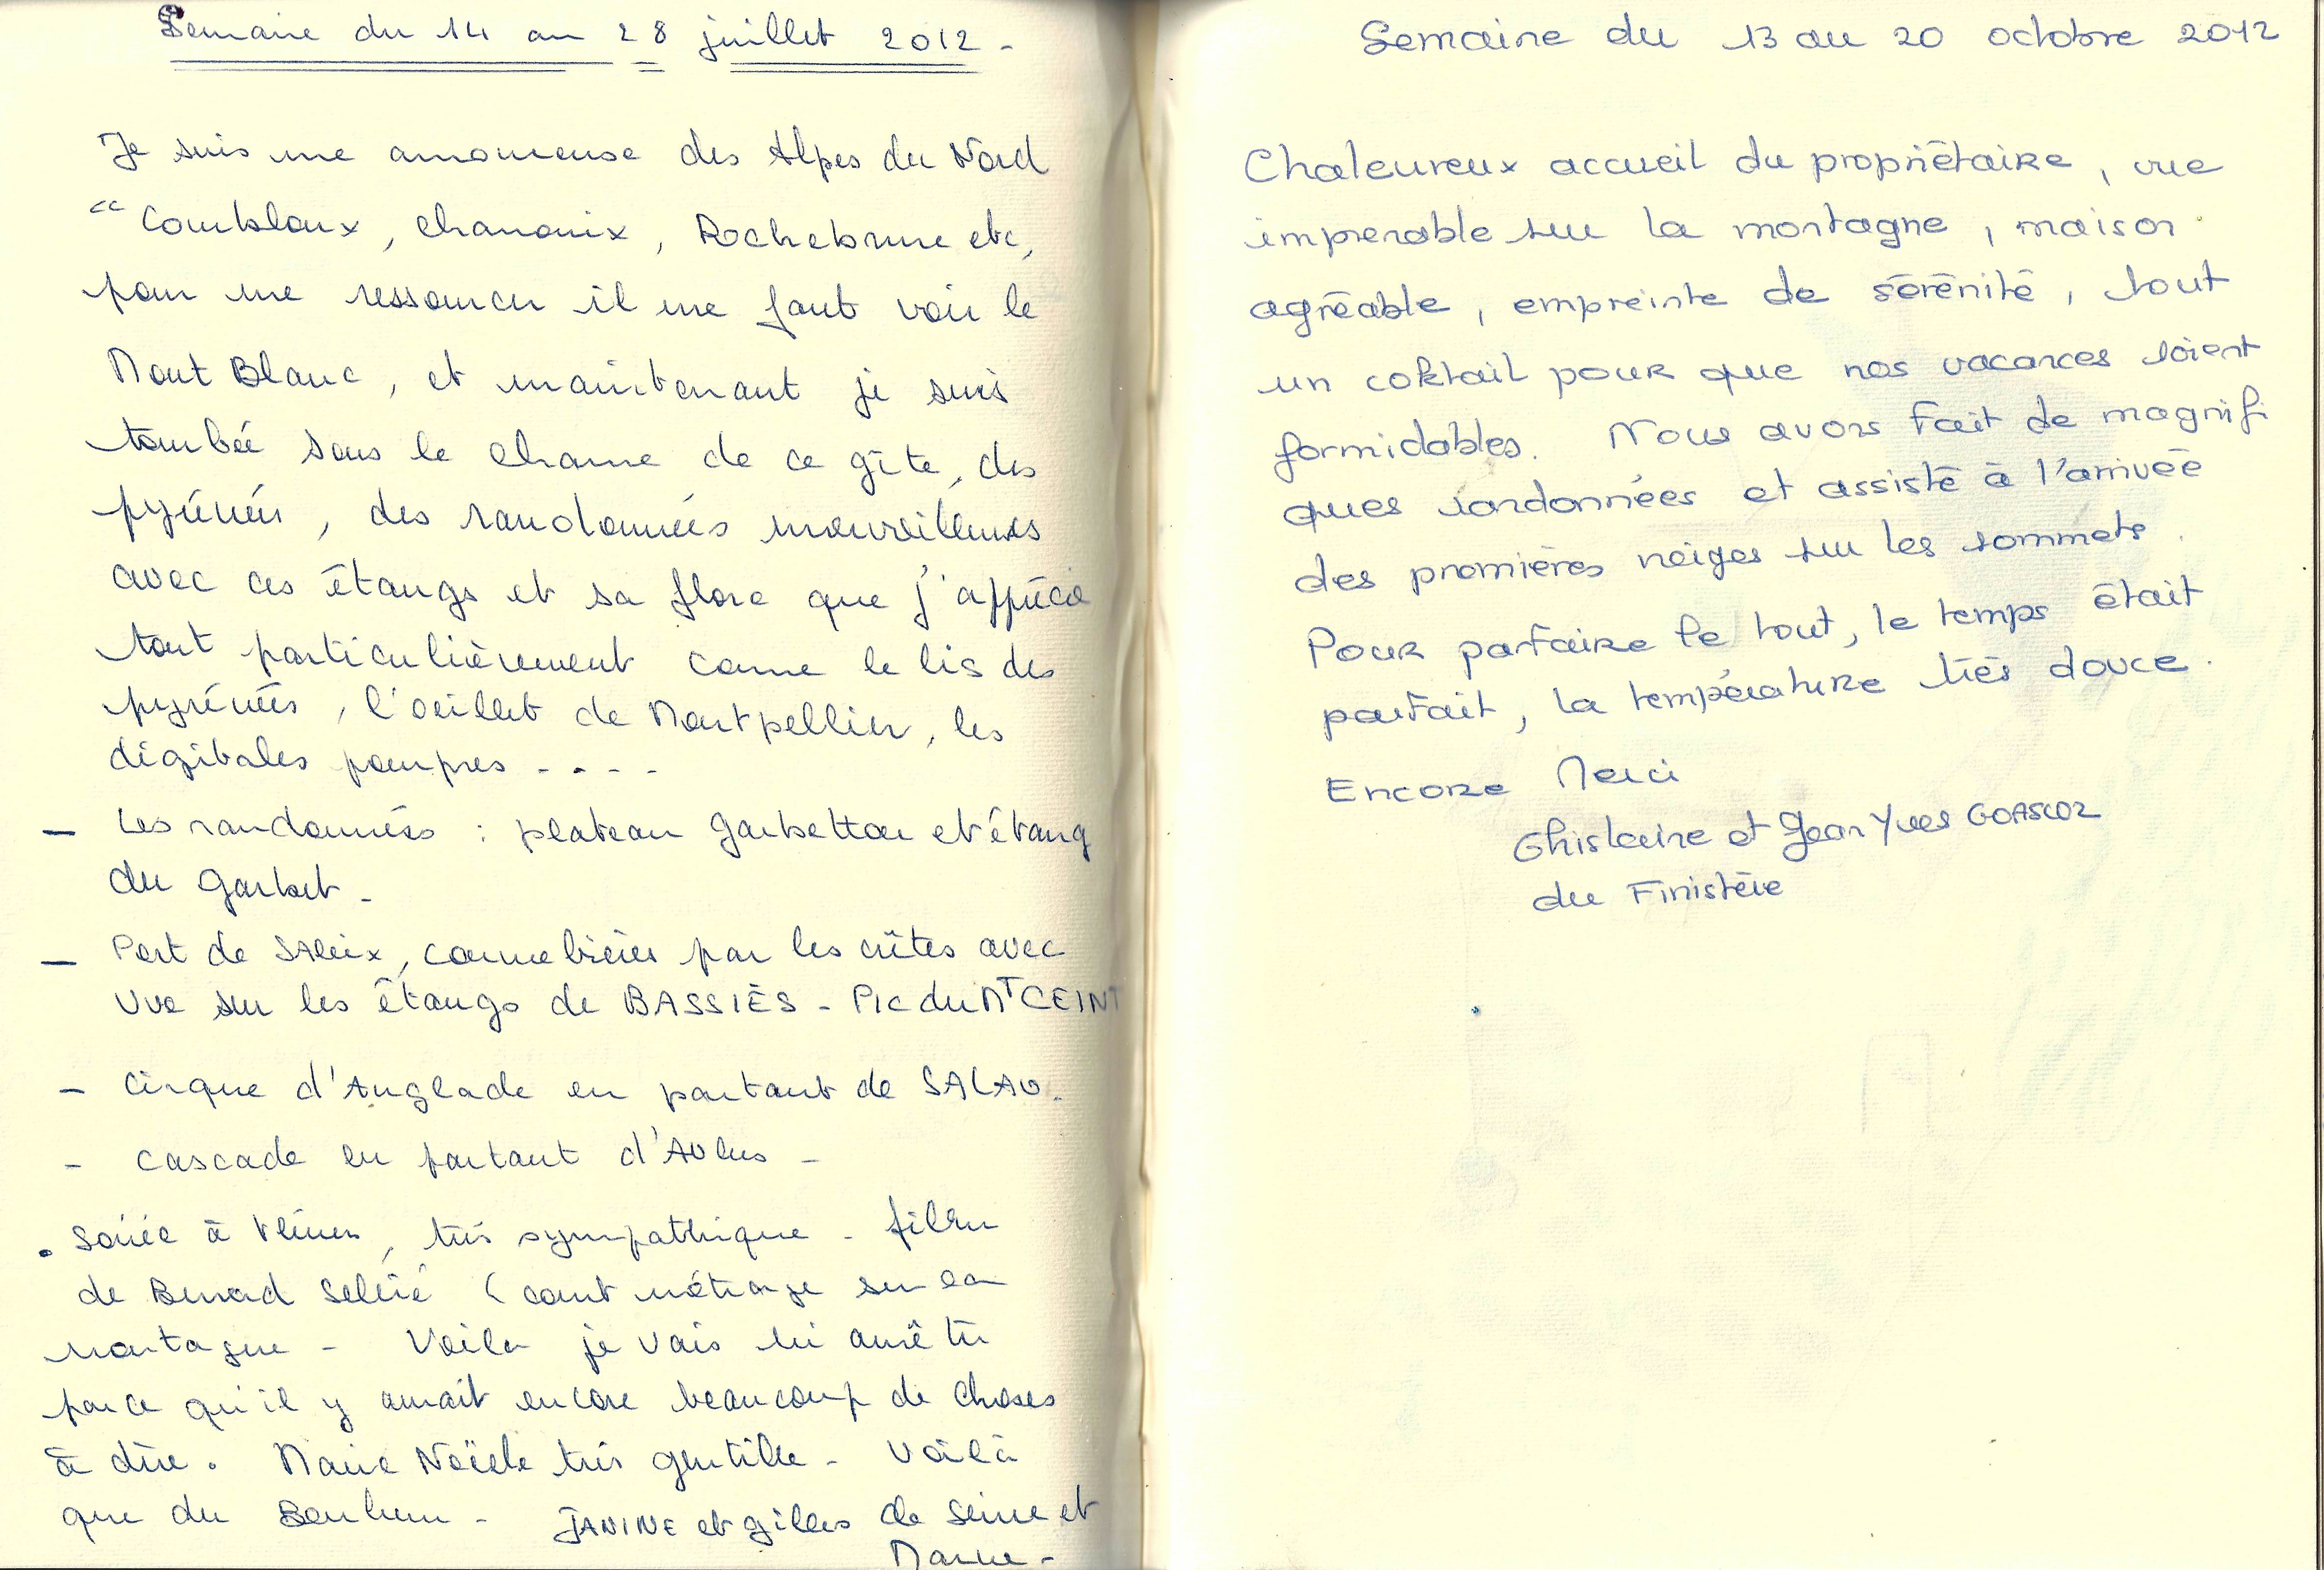 Semaine du 14 au 28 juillet 2012 -
Je suis une amoureuse des Alpes du Nord
"Combloux, Chamonix, Rochebrune etc,
pour me ressourcer il me faut voir le
Mont Blanc, et maintenant je suis
tombée sous le charme de ce gîte, des
pyrénées, des randonnées merveilleuses
avec ces étangs et sa flore que j'apprécie
tout particulièrement come le lis des
pyrénées, l'oeillet de Montpellier, les
digitales pourpres - - - -
- Les randonnées : plateau Garbettou et étang
du Garbet -
- Port de SAleix, par les crêtes avec
vue sur les étangs de BASSIÈS - Pic du MT CEINT
- Cirque d'Anglade en partant de SALAU.
- Cascade en partant d'AUlus -
. Soirée à, très sympathique - film
de Bernard (court métrage sur la
montagne - Voila je vais m'arrêter
parce qu'il y aurait encore beaucoup de choses
à dire. Marie Noëlle très gentille - Voilà
que du Bonheur - JANINE et gilles de Seine et
Marne -
Semaine du 13 au 20 octobre 2012
Chaleureux accueil du propriétaire, vue
imprenable sur la montagne, maison
agréable, empreinte de sérénité, tout
un coktail pour que nos vacances soient
formidables. Nous avons fait de magnifi
ques randonnées et assisté à l'arrivée
des premières neiges sur les sommets.
Pour parfaire le tout, le temps était
parfait, la température très douce.
Encore Merci
Ghislaine et Jean Yves GOASCOZ
du Finistère